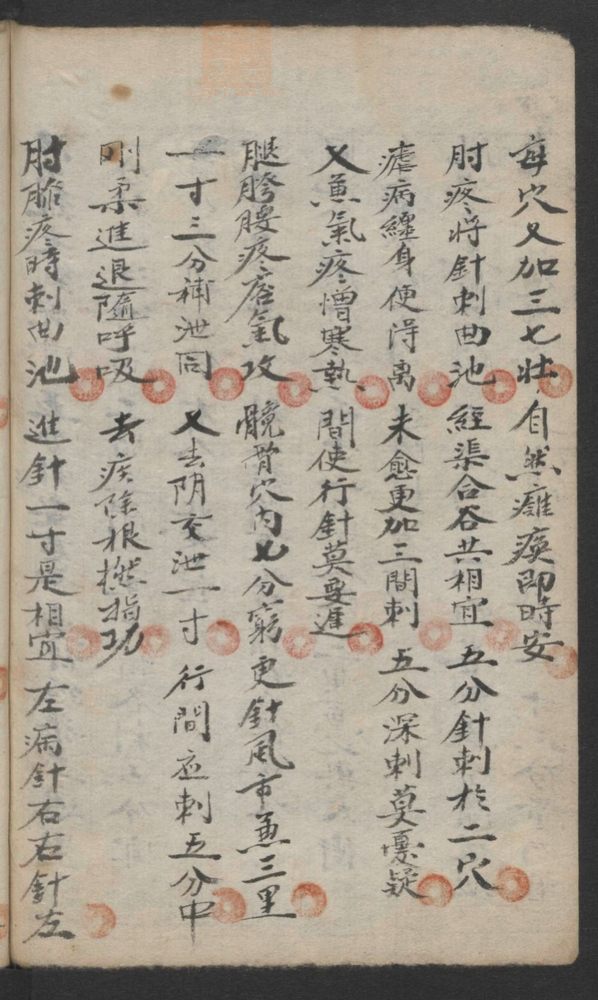 每穴又加三七壯 自然癱瘓即時安
肘疼将針刺曲池 經渠合谷共相宜 五分針刺於二穴
瘧病纏身便淂离 未愈更加三間刺 五分深刺莫憂疑
又兼氣疼憎寒熱 間使行針莫要遲
腿胯腰疼痞氣攻 髖骨穴內七分窮 更針風市兼三里
一寸三分補泄同 又去阴交泄一寸 行間应刺五分中
剛柔進退隨呼吸 去疾除根撚指功
肘膝疼時刺曲池 進針一寸是相宜 左病針右右針左